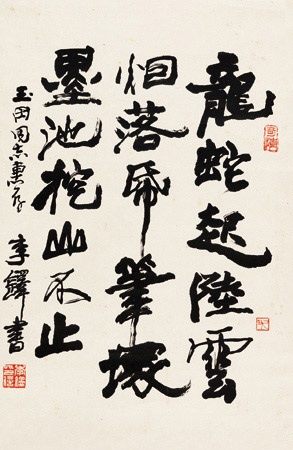 龍蛇起陸雲
烟落帋筆塚
墨池挖山不止
玉田同志惠存
李鐸書